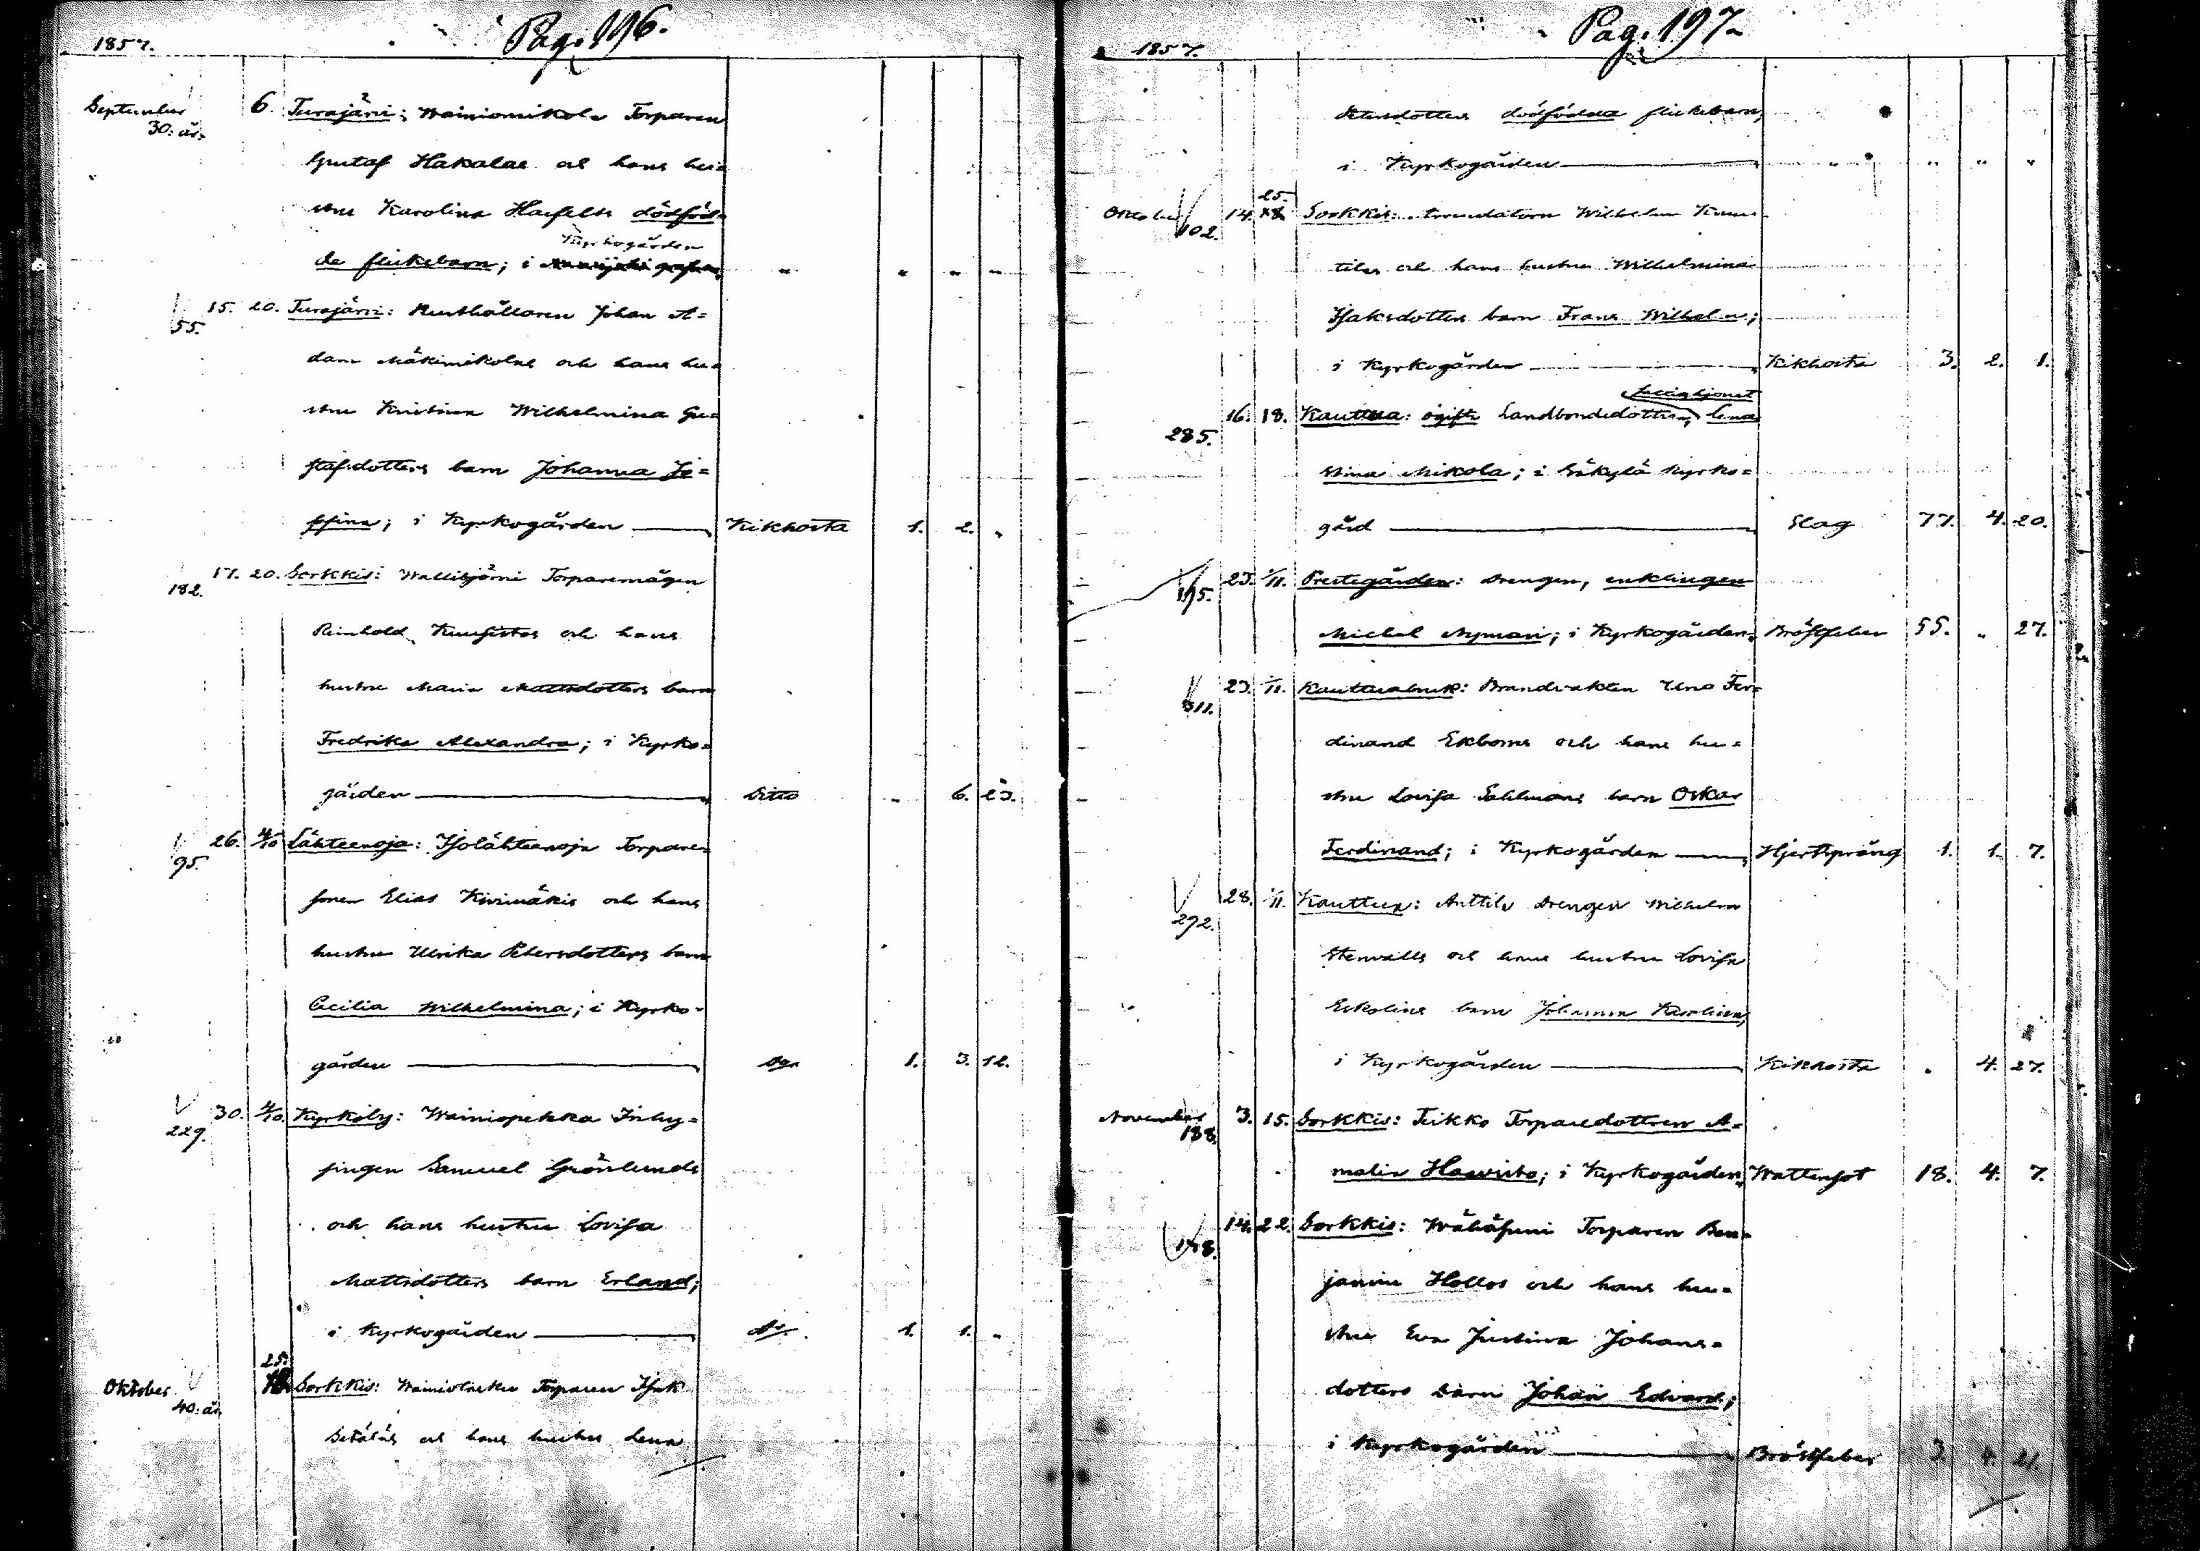 1857.
Pag. 196.
September 6. Turajärvi: Wainiomikola Torparen
30: är.
Gustaf Hakalas och hans hu=
stru Karolina Hasfelts dödföd=
Kyrkogården
de flickebarn; i " " " "
15. 20. Turajärvi: Rusthållaren Johan A=
55.
dam Mäkimikolas och hans hu=
stru Kristina Wilhelmina Gu=
stafsdotters barn Johanna Jo=
sefina; i Kyrkogården Kikhosta 1. 2. "
17. 20. Sorkkis: Torparemågen
182.
Reinhold och hans
hustru Maria Mattsdotters barn
Fredrika Alexandra; i Kyrko=
gården Ditto " 6. 23.
26. 4/10 Lähteenoja: Isolähteenoja Torpare=
95.
sonen Elias Kivimäkis och hans
hustru Ulrika Petersdotters barn
Cecilia Wilhelmina; i Kyrko=
gården 1. 3. 12.
30. 4/10. Kyrkoby: Wainiopekka Inhy=
229.
singen Samuel Grönlunds
och hans hustru Lovisa
Mattsdotters barn Erland;
i Kyrkogården 1. 1. "
25.
Oktober Sorkkis: Torparen Isak
40: är.
och hans hustru Lena
1857.
Pag. 197.
Petersdotters dödfödda flickebarn;
i Kyrkogården " " " "
25.
Oktober 14. Sorkkis: Wilhelm
102.
och hans hustru Wilhelmina
Isaksdotters barn Frans Wilhelm;
i Kyrkogården Kikhosta 3. 2. 1.
fattighjonet
16. 18. Kauttua: ogifta Landbondedottren, Lena
285.
Stina Mikola; i Säkylä Kyrko=
gård Slag 77. 4. 20.
23. 1/11. Prestegården: Drengen, enklingen
195.
Michel Nyman; i Kyrkogården Bröstfeber 55. " 27.
23. 1/11. Kauttuabruk: Brandvakten Uno Fer=
311.
dinand Ekboms och hans hu=
stru Lovisa Sahlmans barn Oskar
Ferdinand; i Kyrkogården Hjertsprång 1. 1. 7.
28. 1/11. Kauttua: Anttila Drengen Wilhelm
292.
Stenvalls och hans hustru Lovisa
barn Johanna Karolina;
i Kyrkogården Kikhosta " 4. 27.
November 3. 15. Sorkkis: Teikko Torparedottren A=
188.
malia; i Kyrkogården Wattensot 18. 4. 7.
14. 22. Sorkkis: Torparen Ben=
jamin Hollos och hans hu=
stru Eva Justina Johans=
dotters barn Johan Edvard;
i Kyrkogården Bröstfeber 3. 4. 21.